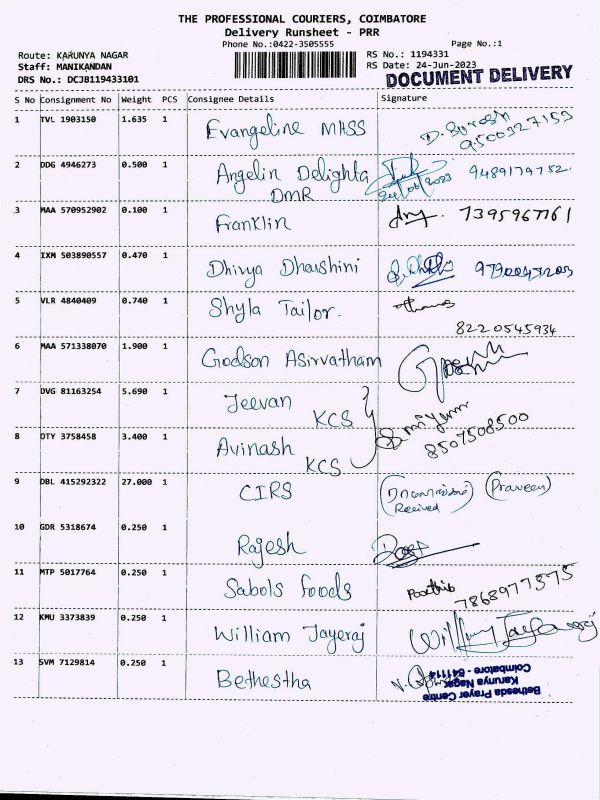 THE PROFESSIONAL COURIERS, COIMBATORE
Delivery Runsheet - PRR
Phone No.:0422-3505555 Page No.:1
Route: KARUNYA NAGAR RS No.: 1194331
Staff: MANIKANDAN RS Date: 24-Jun-2023
DRS No.: DCJB119433101 DOCUMENT DELIVERY
S No Consignment No Weight PCS Consignee Details Signature
1 TVL 1903150 1.635 1 Evangeline MHSS D. Suresh
9500327153
2 DDG 4946273 0.500 1 Angelin Delighta 9489179752.
DMR 24/06/2023
3 MAA 570952902 0.100 1 Franklin 7395967761
4 IXM 503890557 0.470 1 Dhivya Dharshini
5 VLR 4840409 0.740 1 Shyla Tailor.
8220545934
6 MAA 571338070 1.900 1 Godson Asirvatham
7 DVG 81163254 5.690 1 Jeevan
KCS
8 OTY 3758458 3.400 1 Avinash 8507508500
KCS
9 DBL 415292322 27.000 1 CIRS (Praveen)
Recived
10 GDR 5318674 0.250 1 Rajesh
11 MTP 5017764 0.250 1 Sabols foods
7868977375
12 KMU 3373839 0.250 1 William Jayeraj
13 SVM 7129814 0.250 1 Bethestha
Bethesda Prayer Centre
Karunya Nagar
Coimbatore - 641114